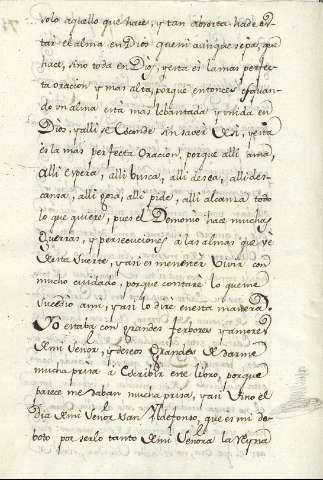 solo aquello que hace, y tan absorta hade es
tar el alma en Dios que ni aun que sepa, que
hace, sino toda en Dios, y esta es la mas perfec
ta oracion, y mas alta, porque entonces esquan
do vn alma està mas lebantada y vnida en
Dios, y alli se Esconde sin saver de si, y esta
es la mas perfecta oracion, porque alli ama,
alli espera, alli busca, alli desea, alli des-
cansa, alli goza, alli pide, alli alcanza todo
lo que quiere, pues el Demonio hace muchas
Guerras, y persecuciones à las almas que vè
desta suerte, y asi es menester vivir con
mucho cuidado, porque contarè lo que me
sucedio ami, y asi lo dirè en esta manera.
Yo estaba con grandes ferbores, y amores
de mi Señor, y deseos Grandes de darme
mucha prisa à Escribir este libro, porque
parece me daban mucha prisa, y asi vino el
Dia de mi Señor San Ildefonso, que es mi de
boto por serlo tanto de mi Señora la Reyna